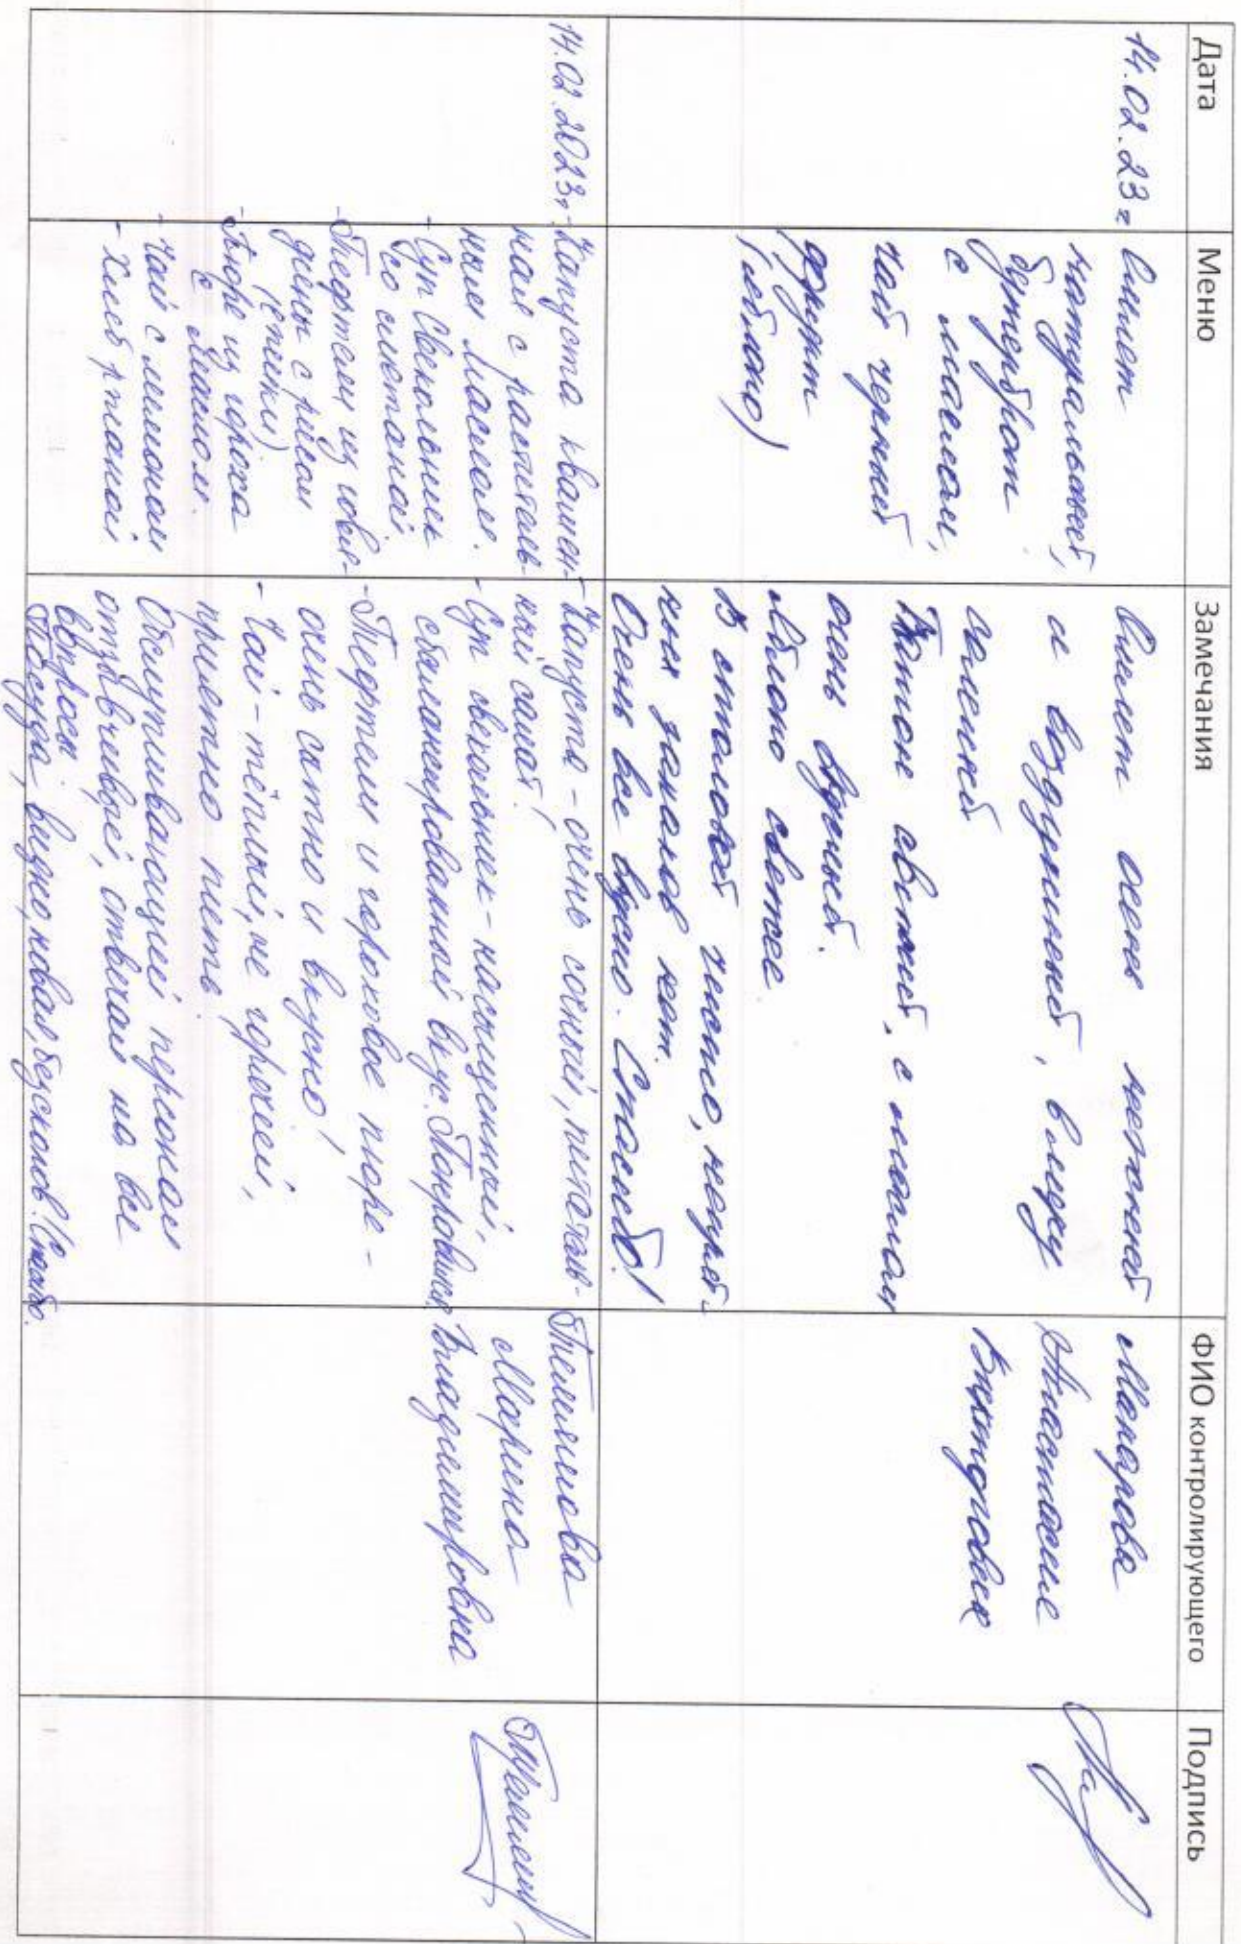 Дата Меню Замечания ФИО контролирующего Подпись
14.02.23г
Омлет
натуральный,
бутерброт
с маслом,
чай черный
фрукт
(яблоко)
Омлет очень нежный
и воздушный, в меру
соленый
Батон свежий, с маслом
очень вкусный.
яблоко свежее
В столовой чисто, непрят-
ных запахов нет.
Очень все вкусно. Спасибо!
Макарова
Анастасия
Викторовна
14.02.2023г
- Капуста квашен-
ная с раститель-
ным маслом.
- Суп Свекольник
со сметаной
- Тефтели из говя-
дины с рисом
(ёжики)
- Пюре из гороха
с маслом.
- Чай с лимоном
- Хлеб ржаной
- Капуста - очень сочный, питатель-
ный салат!
- Суп свекольник - насыщенный,
сбалансированный вкус. Понравился.
- Тефтели и гороховое пюре -
очень сытно и вкусно!
- Чай - тёплый, не горячий,
приятно пить.
Обслуживающий персонал
отзывчивый, отвечал на все
вопросы.
Посуда, видно, новая, без сколов! Спасибо.
Марина
Владимировна